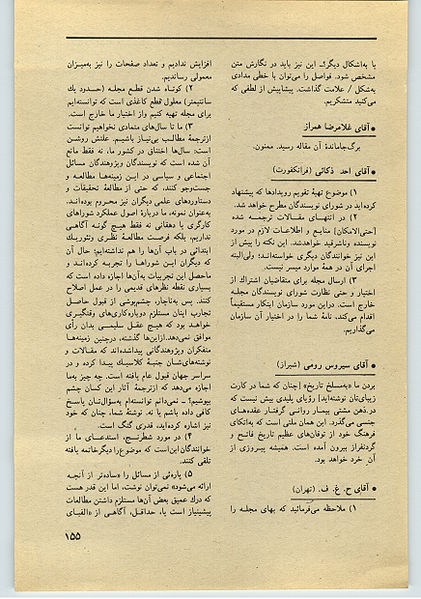 یا به‌اشکال دیگر؛ـ این نیز باید در نگارش متن
مشخص شود. فواصل را می‌توان با خطی مدادی
به‌شکل / علامت گذاشت. پیشاپیش از لطفی که
می‌کنید متشکریم.
• آقای غلامرضا همراز
برگ‌جاماندهٔ آن مقاله رسید. ممنون.
• آقای احد ذکائی (فرانکفورت)
۱) موضوع تهیهٔ تقویم رویدادها که پیشنهاد
کرده‌اید در شورای نویسندگان مطرح خواهد شد.
۲) در انتهای مقالات ترجمه شده
(حتی‌الامکان) منابع و اطلاعات لازم در مورد
نویسنده وناشرقید خواهدشد. این نکته را پیش از
این نیز خوانندگان دیگری خواسته‌اند؛ ولی‌البته
اجرای آن در همهٔ موارد میسر نیست.
۳) ارسال مجله برای متقاضیان اشتراك از
اختیار و حتی نظارت شورای نویسندگان مجله
خارج است. دراین مورد سازمان ابتکار مستقیماً
اقدام می‌کند، نامهٔ شما را در اختیار آن سازمان
می‌گذاریم.
• آقای سیروس رومی (شیراز)
بردن ما «به‌مسلخ تاریخ» [چنان که شما در کارت
زیبای‌تان نوشته‌اید] رؤیای پلیدی بیش نیست که
در ذهن مشتی بیمار روانی گرفتار عقده‌های
جنسی می‌گذرد. این همان ملتی است که به‌اتکای
فرهنگ خود از توفان‌های عظیم تاریخ فاتح و
گردنفراز بیرون آمده است. همیشه پیروزی از
آن خرد خواهد بود.
• آقای ح. غ. ف. (تهران)
۱) ملاحظه می‌فرمائید که بهای مجله را
افزایش ندادیم و تعداد صفحات را نیز به‌میزان
معمولی رساندیم.
۲) کوتاه شدن قطع مجله (حدود یك
سانتیمتر) معلول قطع کاغذی است که توانسته‌ایم
برای مجله تهیه کنیم واز اختیار ما خارج است.
۳) ما تا سال‌های متمادی نخواهیم توانست
ازترجمهٔ مطالب بی‌نیاز باشیم. علتش روشن
است: سال‌ها اختناق در کشور ما، نه فقط مانع
آن شده است که نویسندگان وپژوهندگان مسائل
اجتماعی و سیاسی در این زمینه‌ها مطالعه و
جست‌وجو کنند، که حتی از مطالعهٔ تحقیقات و
دستاوردهای علمی دیگران نیز محروم بوده‌اند.
به‌عنوان نمونه، ما دربارهٔ اصول عملکرد شوراهای
کارگری یا دهقانی نه فقط هیچ گونه آگاهی
نداریم، بلکه فرصت مطالعهٔ نظری وتئوریك
ابتدائی در باب آن‌ها را هم نداشته‌ایم؛ حال آن
که دیگران این شوراها را تجربه کرده‌اند و
ماحصل این تجربیات به‌آن‌ها اجازه داده است که
بسیاری نقطه نظرهای قدیمی را در عمل اصلاح
کنند. پس به‌ناچار، چشم‌پوشی از قبول حاصل
تجارب اینان مستلزم دوباره‌کاری‌های وقتگیری
خواهد بود که هیچ عقل سلیمی بدان رأی
موافق نمی‌دهد.ازاین‌ها گذشته، درچنین زمینه‌ها
متفکران وپژوهندگانی پیداشده‌اند که مقالات و
نوشته‌های‌شان جنبهٔ کلاسیك پیدا کرده و در
سراسر جهان قبول عام یافته است. چه چیز به‌ما
اجازه می‌دهد که ازترجمهٔ آثار این کسان چشم
بپوشیم؟ ــ نمی‌دانم توانسته‌ام به‌سؤال‌تان پاسخ
کافی داده باشم یا نه. نوشتهٔ شما، چنان که خود
نیز اشاره کرده‌اید، قدری گنگ است.
۴) در مورد شطرنج، استدعای ما از
خوانندگان این‌است که موضوع‌را دیگرخاتمه یافته
تلقی کنند.
۵) پاره‌ئی از مسائل را «ساده‌تر از آنچه
ارائه می‌شود» نمی‌توان نوشت، اما این قدر هست
که درك عمیق بعض آن‌ها مستلزم داشتن مطالعات
پیشینی‌تر است یا، حداقل، آگاهی از «الفبای
۱۵۵